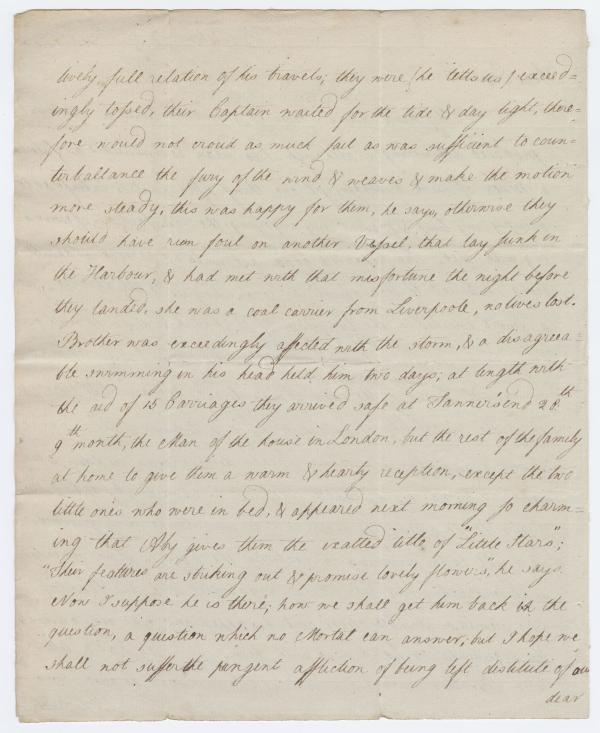 lively, full relation of his travels; they were (he tells us) exceed=
ingly tossed, their Captain waited for the tide & day light, there=
fore would not croud as much sail as was sufficient to coun=
terballance the fury of the wind & weaves & make the motion
more steady, this was happy for them, he says, otherwise they
should have run foul on another Vessel, that lay sunk in
the Harbour, & had met with that misfortune the night before
they landed. she was a coal carrier from Liverpoole, no lives lost.
Brother was exceedingly affected with the storm, & a disagreea=
ble swimming in his head held him two days; at length with
the aid of 15 Carriages they arrived safe at Tanner's end 28th
9th month, the Man of the house in London, but the rest of the family
at home to give them a warm & hearty reception, except the two
little ones who were in bed, & appeared next morning so charm=
ing that Aby gives them the exalted title of "Little Stars";
"Their features are striking out & promise lovely flowers, he says.
Now I suppose he is there; how we shall get him back is the
question, a question which no Mortal can answer; but I hope we
shall not suffer the pungent affliction of being left destitute of our
dear